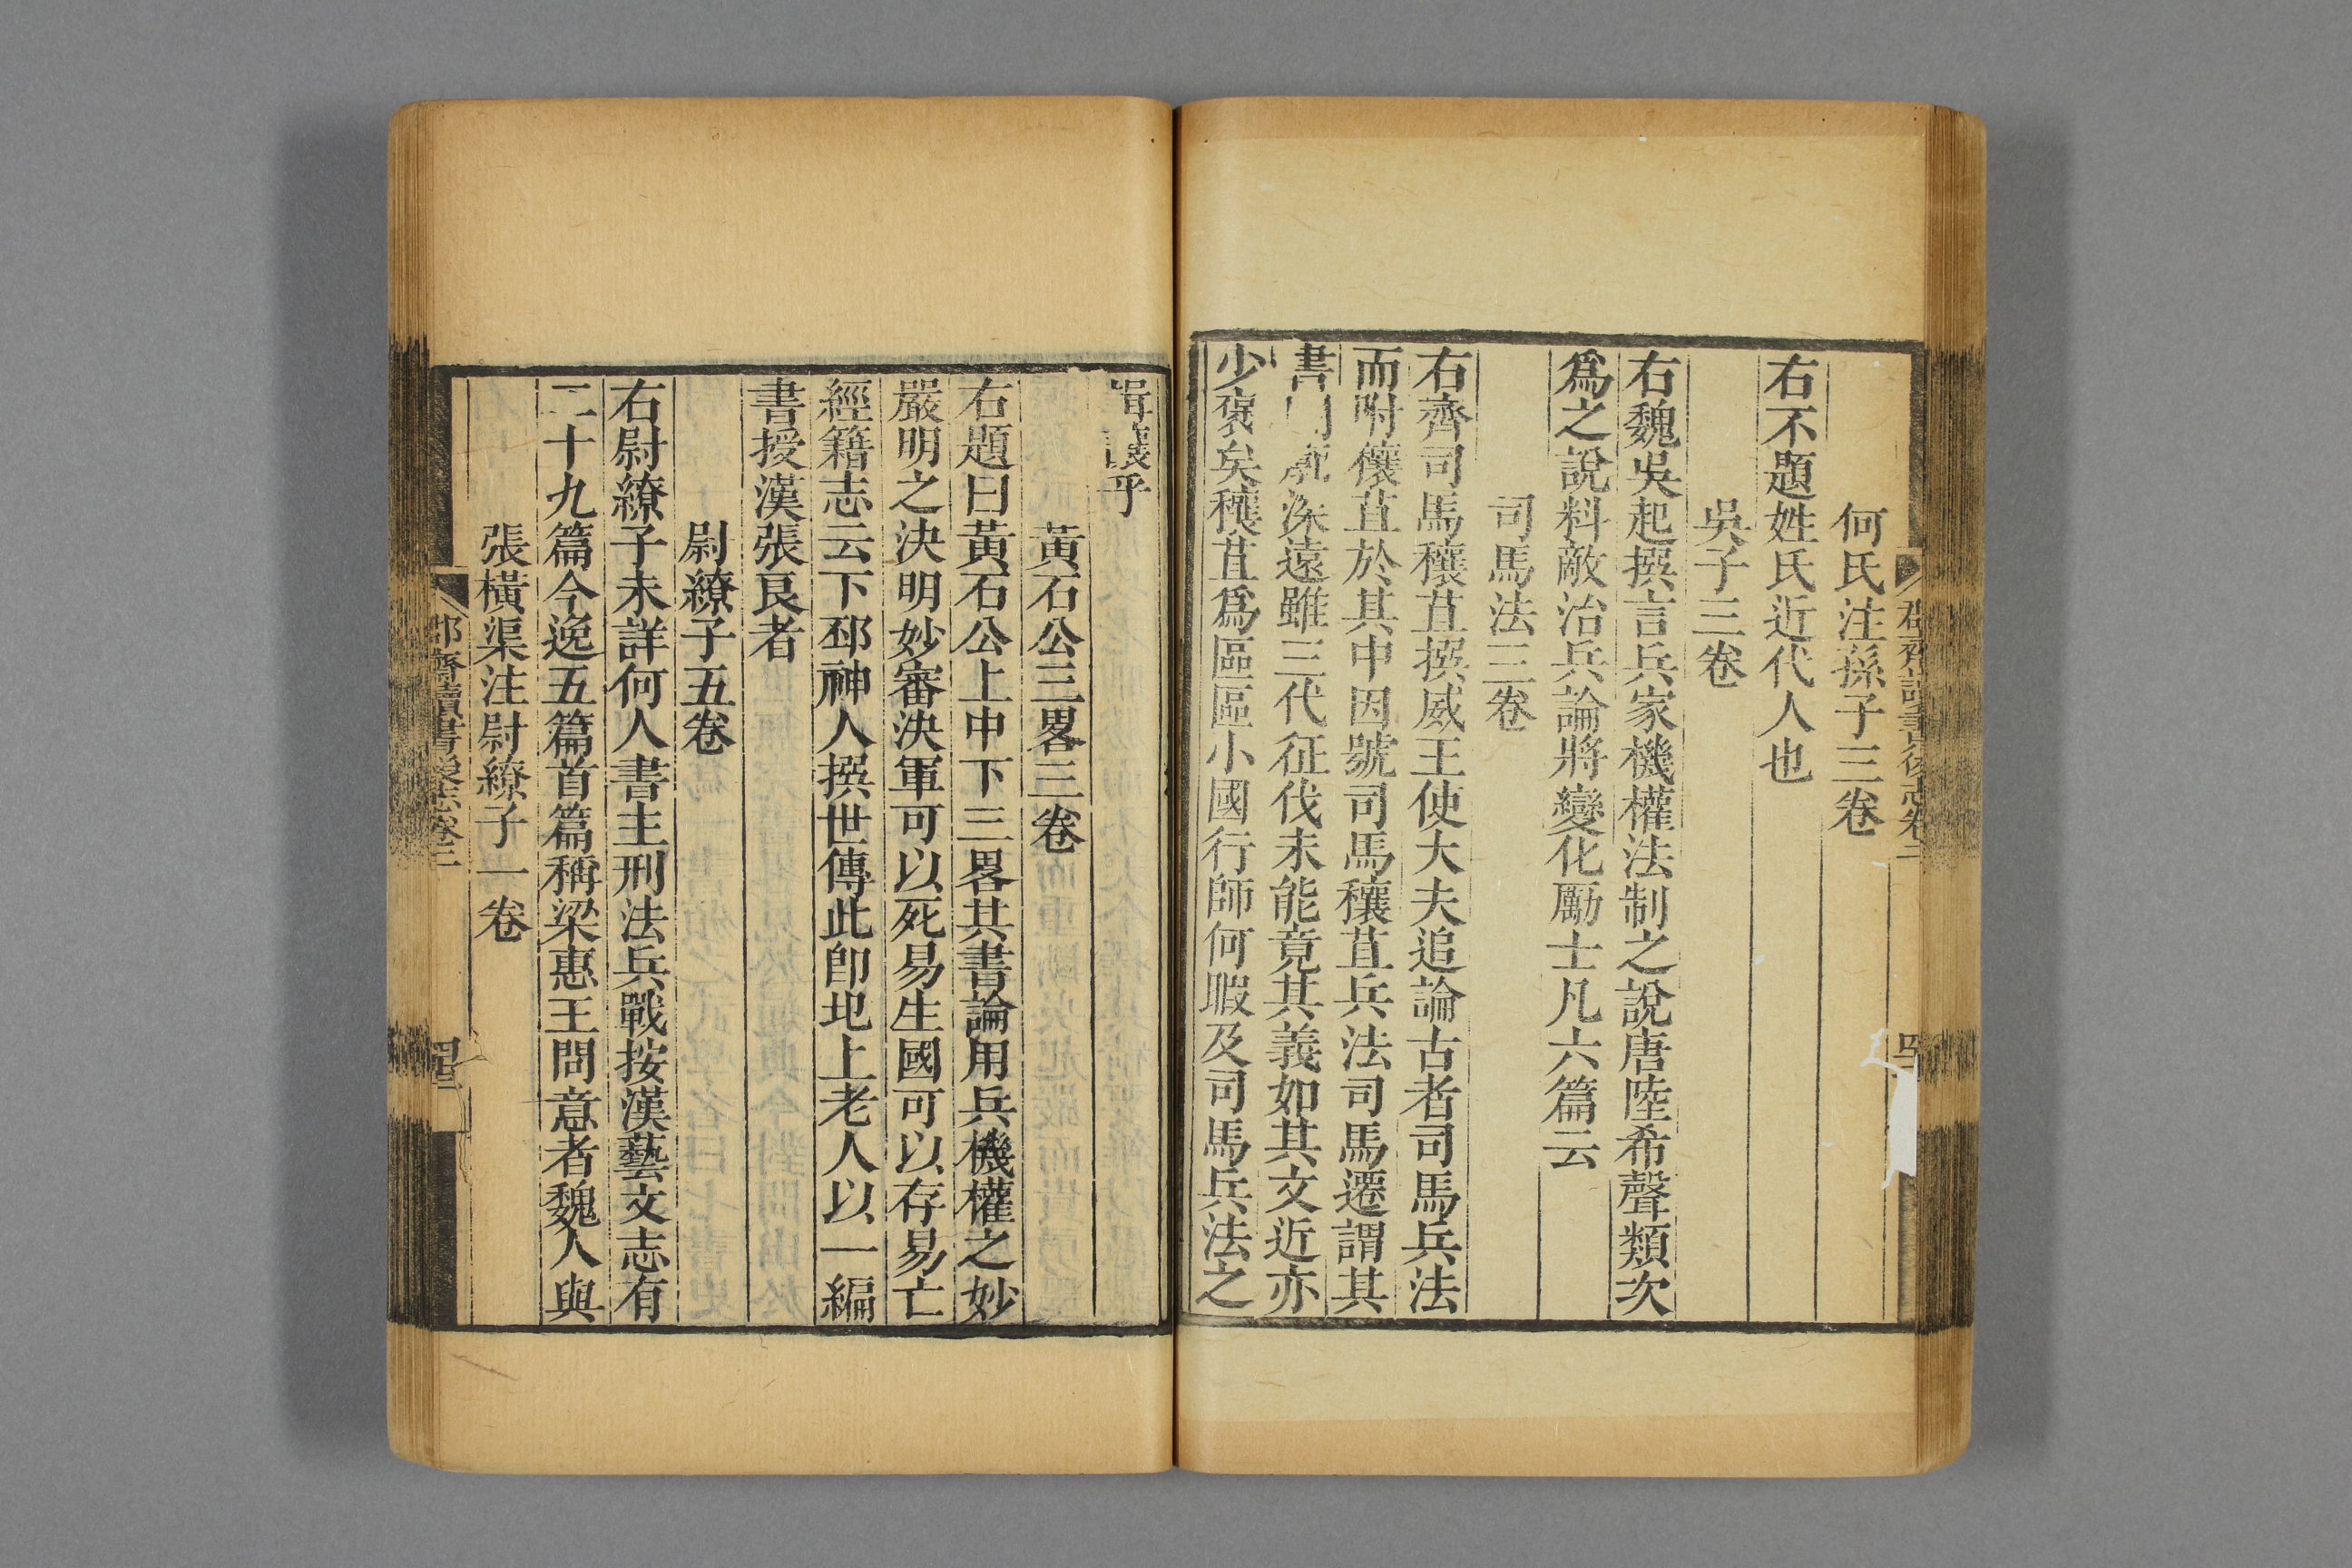 何氏注孫子三卷
右不題姓氏近代人也
吳子三卷
右魏吳起撰言兵家機權法制之說唐陸希聲類次
爲之說料敵治兵論將變化勵士凡六篇云
司馬法三卷
右齊司馬穰苴撰威王使大夫追論古者司馬兵法
而附穰苴於其中因號司馬穰苴兵法司馬遷謂其
書閎廓深遠雖三代征伐未能竟其義如其文近亦
少襃矣穰苴爲區區小國行師何暇及司馬兵法之
揖讓乎
黃石公三畧三卷
右題曰黃石公上中下三畧其書論用兵機權之妙
嚴明之決明妙審決軍可以死易生國可以存易亡
經籍志云下邳神人撰世傳此卽圯上老人以一編
書授漢張良者
尉繚子五卷
右尉繚子未詳何人書主刑法兵戰按漢藝文志有
二十九篇今逸五篇首篇稱梁惠王問意者魏人與
張橫渠注尉繚子一卷
郡齋讀書後志卷二